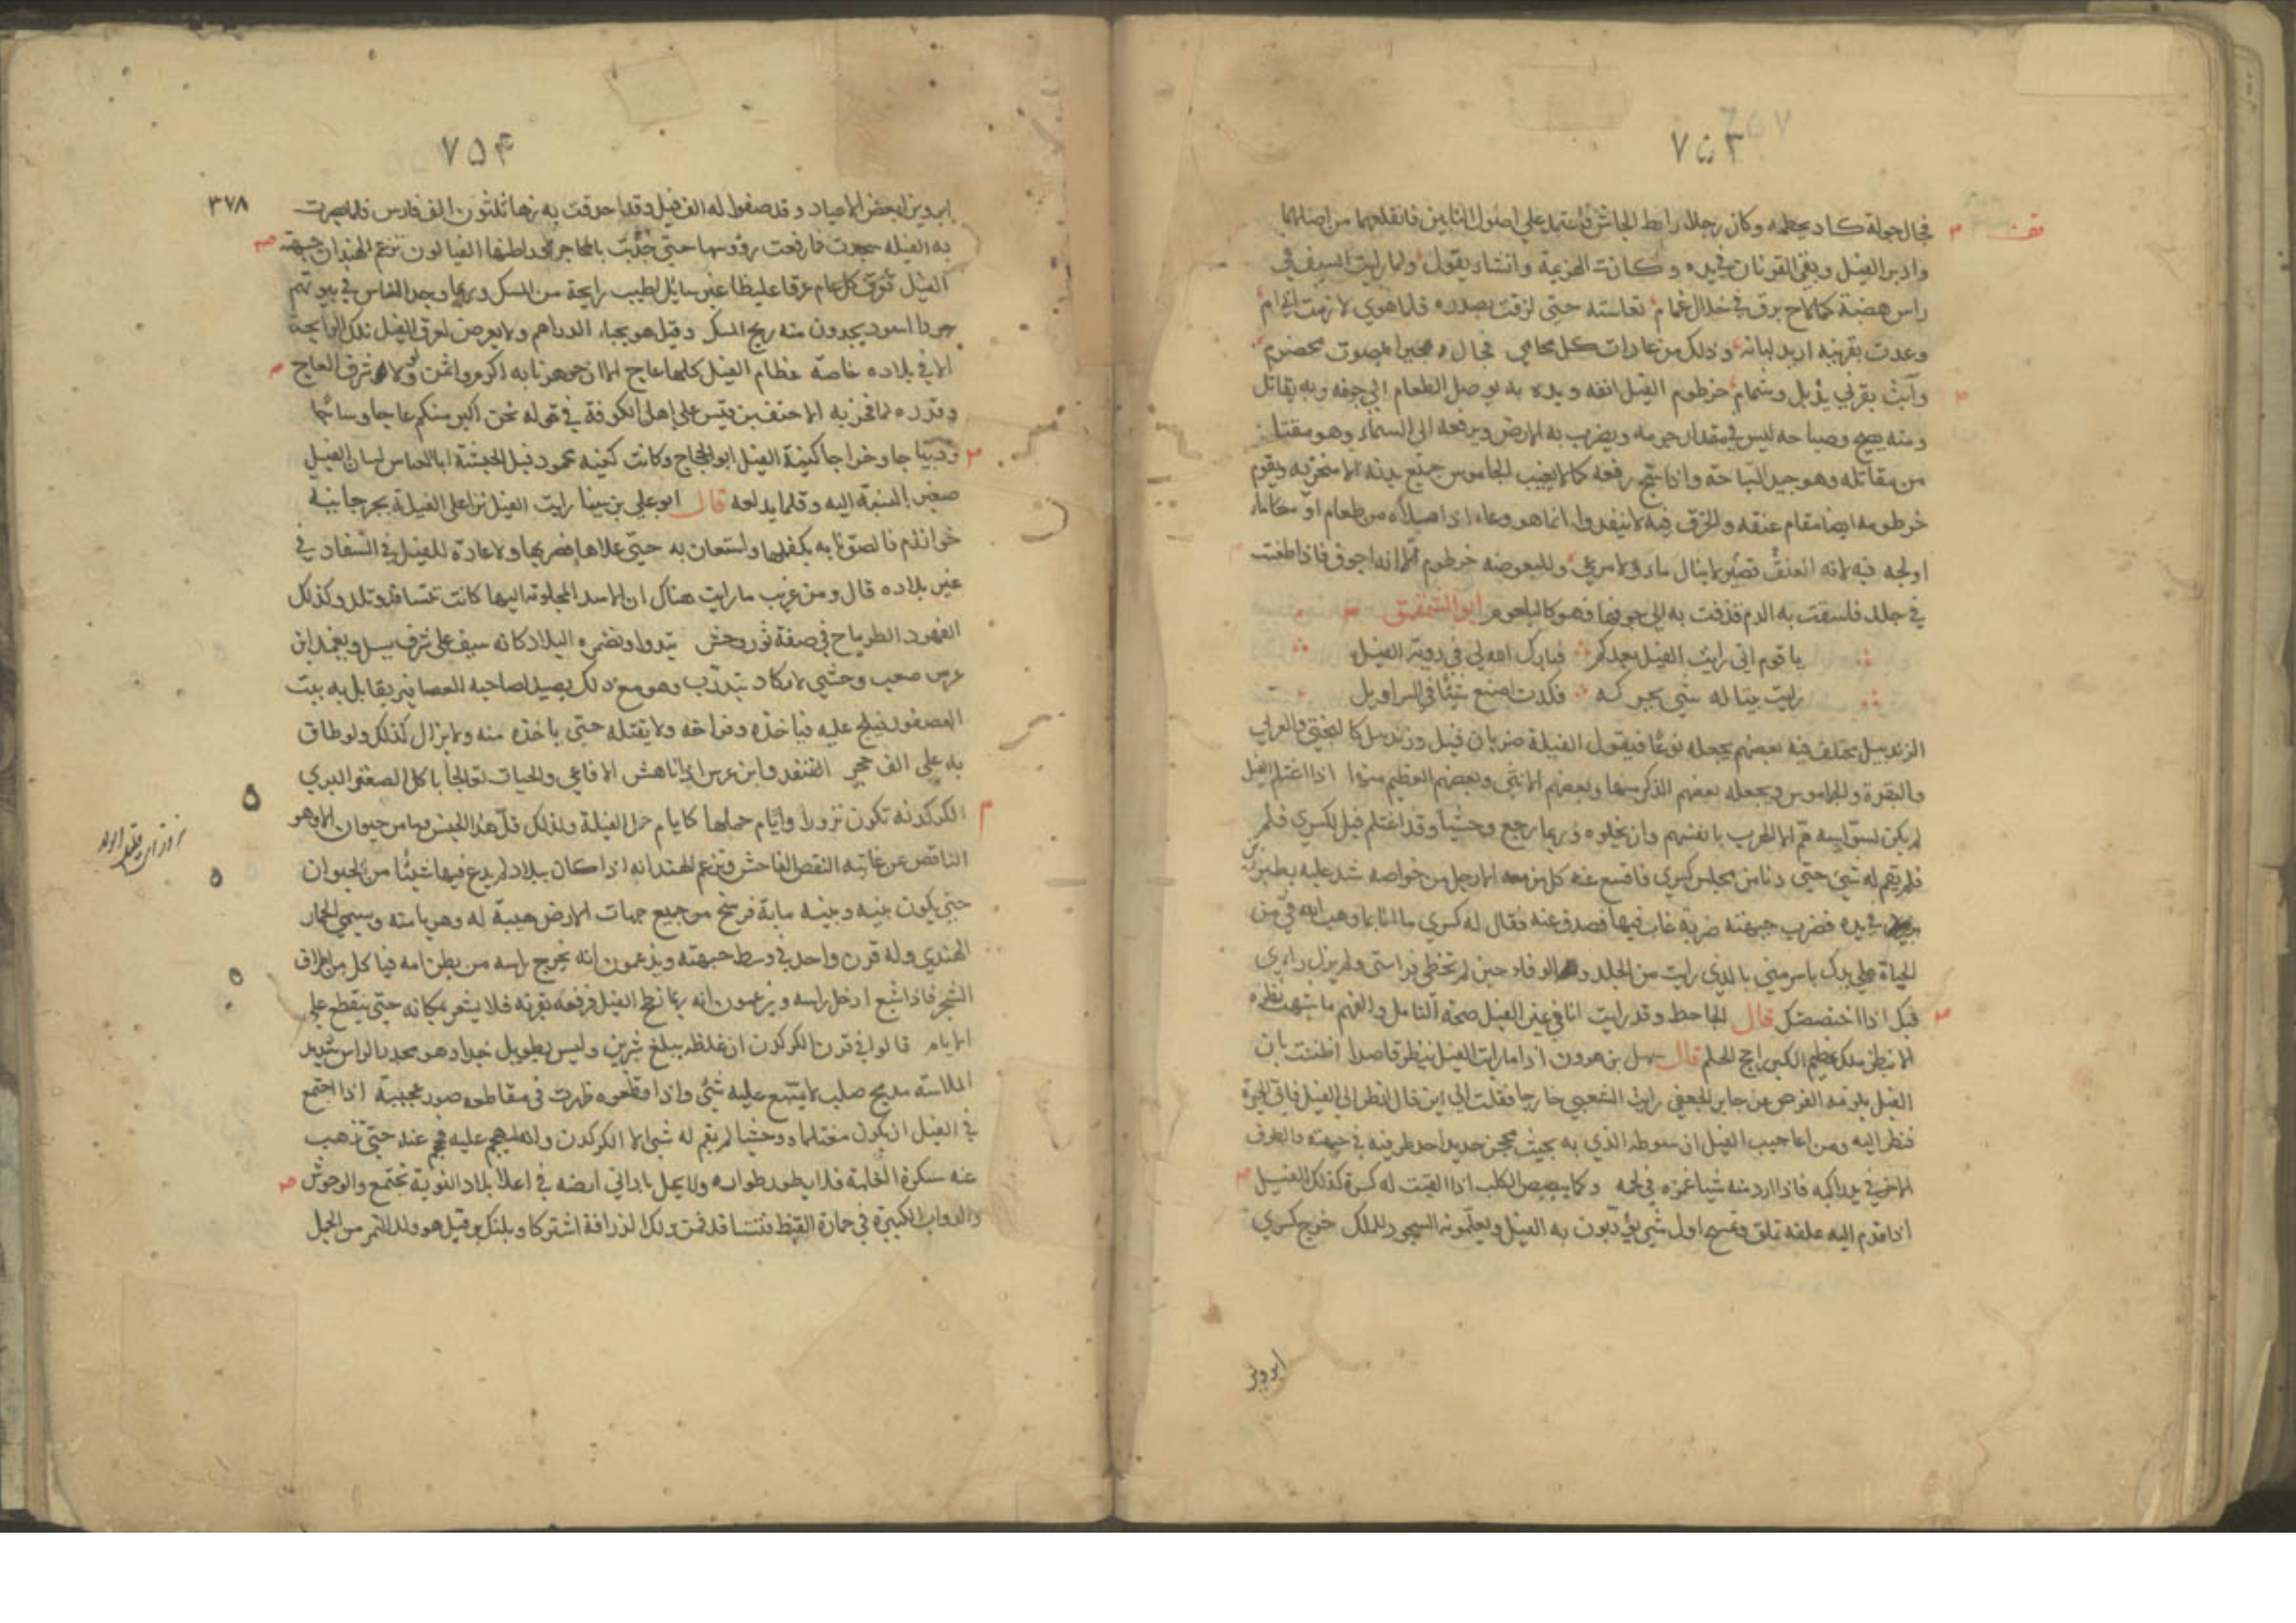 ٧٥٣
فجال جولة كاد يحطمه وكان رجلا رابط الجاش فاعتمد على اصول النابين فانقلعهما من اصلهما
وادبر الفيل وبقي القرنان في يده وكانت الهزيمة وانشاد يقول ولما رايت السيف في
راس هضبة كما لاح برق في خلال غمام تعاسته حتى لزقت بصدره فلما هوي لازمت اي
وعدت بقرنيه اريد لبانه وذلك من عادات كل محامي فجال بصوت مخضرم
وأبت بقرني يذبل وشمام خرطوم الفيل انفه ويده به يوصل الطعام الى جوفه وبه يقاتل
ومنه يصيح وصياحه ليس في مقدار جرمه ويضرب به الارض ويرفعه الى السماء وهو مقتل
من مقاتله وهو جيد السباحة واذا سبح رفعه كما لا يغيب الجاموس جميع بدنه الا منخريه ويقوم
خرطومه ايضا مقام عنقه والخرق فيه لا ينفد وانما هو وعاء اذا املأه من طعام او ماء
اولجه فيه لانه العنق قصير لا ينال ماء ولا مرعى وللبعوضه خرطوم الا انه اجوف فاذا طعنت
في جلد فاسقت به الدم قذفت به الى جوفها فهو كالبلعوم ابو الشمقمق
يا قوم اني رايت الفيل بعدكم فبارك الله لي في روية الفيل
رايت بيتا له شي يحركه فكدت اصنع شيئا في السراويل
الزندبيل يختلف فيه بعضهم يجعله نوعا فيقول الفيلة ضربان فيل وزندبيل كالبختي والعرابي
والبقرة والجاموس ويجعله بعضهم الذكر منها وبعضهم الانثى وبعضهم العظيم منها اذا اغتلم الفيل
لم يكن لسواسه هم الا الهرب بانفسهم وان يخلوه وربما رجع وحشيا وقد اغتلم فيل لكسرى فلم
فلم يقم له شي حتى دنا من مجلس كسرى فاقشع عنه كل من معه الا رجل من خواصه شد عليه بطبرزين
في يده فضرب جبهته ضربة غاب فيها فصدف عنه فقال له كسرى ما انا بما وهب الله لي من
الحياة على يدك باسر مني بالذي رايت من الجلد والوفاء حين لم تخطي فراستي ولم يزل رايي
فيك اذا اختصصتك قال الجاحظ وقد رايت انا في عين الفيل صحة التامل والفهم ما شبهت نظره
الا بنظر ملك عظيم الكبر راجح الحلم قال سهل بن هرون اذا ما رايت الفيل ينظر قاصدا ظننت بان
الفيل يلزمه الفرض عن جابر الجعفي رايت الشعبي خارجا فقلت الى اين قال انظر الى الفيل
فنظر اليه ومن اعاجيب الفيل ان سوطه الذي به يحث محجن حديد احد طرفيه في جبهته والطرف
الاخر في يد راكبه فاذا اراد منه شيا غمزه في لحمه وكما يبصبص الكلب اذا القيت له كسرة كذلك الفيل
اذا قدم اليه علفه تملق وتمسح اول شي يؤدبون به الفيل ويعلمونه السجود للملك خرج كسرى
ابرويز
٧٥٤
٣٧٨
ابرويز لبعض الاعياد وقد صفوا له الف فيل وقد احدقت به زها ثلثون الف فارس فلما بصرت
به الفيله سجدت فما رفعت رؤوسها حتى جذبت بالمحاجن وراطنها الفيالون تزعم الهند ان جبهة
الفيل تعرق كل عام عرقا غليظا غير سائل اطيب رايحة من المسك وربما وجد الناس في بيوتهم
جرذا اسود يجدون منه ريح المسك وقيل هو يخباء الدراهم ولا يعرض لعرق الفيل تلك الرايحة
الا في بلاده خاصة عظام الفيل كلها عاج الا ان جوهر نابه اكرم واثمن ولولا شرف العاج
وقدره لما فخر به الاحنف بن قيس على اهل الكوفة في قوله نحن اكبر منكم عاجا وساجا
وديباجا وخراجا كنية الفيل ابو الحجاج وكانت كنية محمود فيل الحبشة ابا العباس لسان الفيل
صغير بالنسبة اليه وقلما يدلعه قال ابو علي بن سينا رايت الفيل نزا على الفيلة بجرجانية
خوارزم فالصق نابه بكفلها واستعان به حتى علاها فضربها ولا عادة للفيل في السفاد في
غير بلاده قال ومن غريب ما رايت هناك ان الاسد المجلوبة اليها كانت تتسافد وتلد وكذلك
الفهود الطرماح في صفة ثور وحش يبدوا وتضمره البلاد كانه سيف على شرف يسل ويغمد ابن
عرس صعب وحشي لا يكاد يتدرب وهو مع ذلك يصيد لصاحبه العصافير يقابل به بيت
العصفور فيلج عليه فياخذه وفراخه ولا يقتله حتى ياخذه منه ولا يزال كذلك ولو طاف
به على الف حجر القنفد وابن عرس اذا ناهش الافاعي والحيات تعالجا باكل الصعتر البري
الكركدنه تكون نزورا وايام حملها كايام حمل الفيلة ولذلك قل هذا الجنس وما من حيوان الا وهو
الناقص عن غايته النقص الفاحش وتزعم الهند انه اذا كان ببلاد لم يدع فيها شيئا من الحيوان
حتى يكون بينه وبينه ماية فرسخ من جميع جهات الارض هيبة له وهربا منه ويسمي الحمار
الهندي وله قرن واحد في وسط جبهته ويزعمون انه يخرج راسه من بطن امه فياكل من اطراف
الشجر فاذا شبع ادخل راسه ويزعمون انه ربما نطح الفيل فرفعه بقرنه فلا يشعر بمكانه حتى ينقطع على
الايام قالوا في قرن الكركدن ان غلظه يبلغ شبرين وليس بطويل جدا وهو محدد الراس شديد
الملاسة مدمج صلب لا يمتنع عليه شئ واذا قطعوه ظهرت في مقاطعه صور عجيبة اذا اجتمع
في الفيل ان يكون مغتلما ووحشيا لم يقم له شي الا الكركدن وانه ليهجم عليه فيحجم عنه حتى تذهب
عنه سكرة الغلمة فلا يطور طواره ولا يحل باداني ارضه في اعلا بلاد النوبة تجتمع والوحوش
والدواب الكبيرة في حمارة القيظ فتتسافد فمن ذلك الزرافة اشتركا وبلنك وقيل هو ولد النمر من الجمل